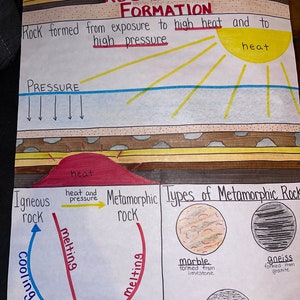 FORMATION
Rock formed from exposure to high heat and to
high pressure.
heat
PRESSURE
heat
Igneous rock
heat and pressure
Metamorphic rock
melting
melting
cooling
Types of Metamorphic Rock
marble
formed from
limestone
gneiss
formed from
granite